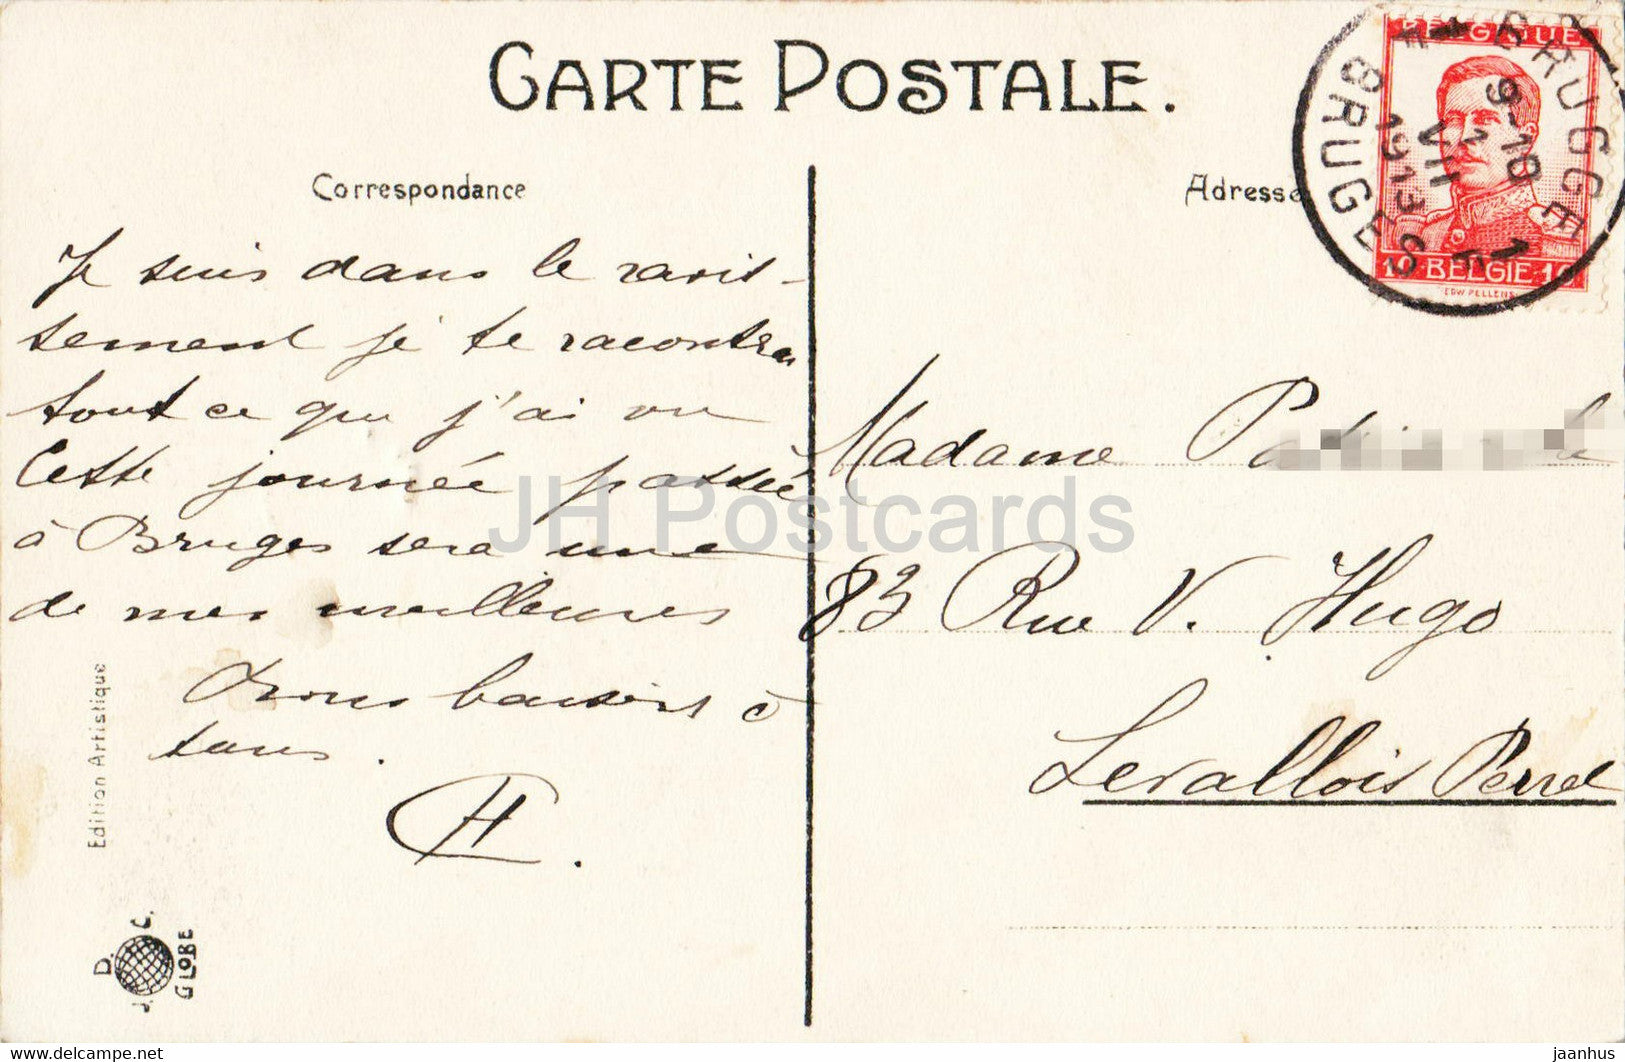 CARTE POSTALE.
Correspondance
Adresse
BELGIQUE
10 BELGIË 10
EDW PELLENS
BRUGGE 1
9-10
1
VIII
1913
BRUGES
Je suis dans le ravis-
sement je te racontrai
tout ce que j'ai vu
Cette journée passée
à Bruges sera une
de mes meilleures
bons baisers à
tous.
H.
Madame
83 Rue V. Hugo
Levallois Perret
Edition Artistique
D.
GLOBE
JH Postcards
jaanhus @ delcampe.net